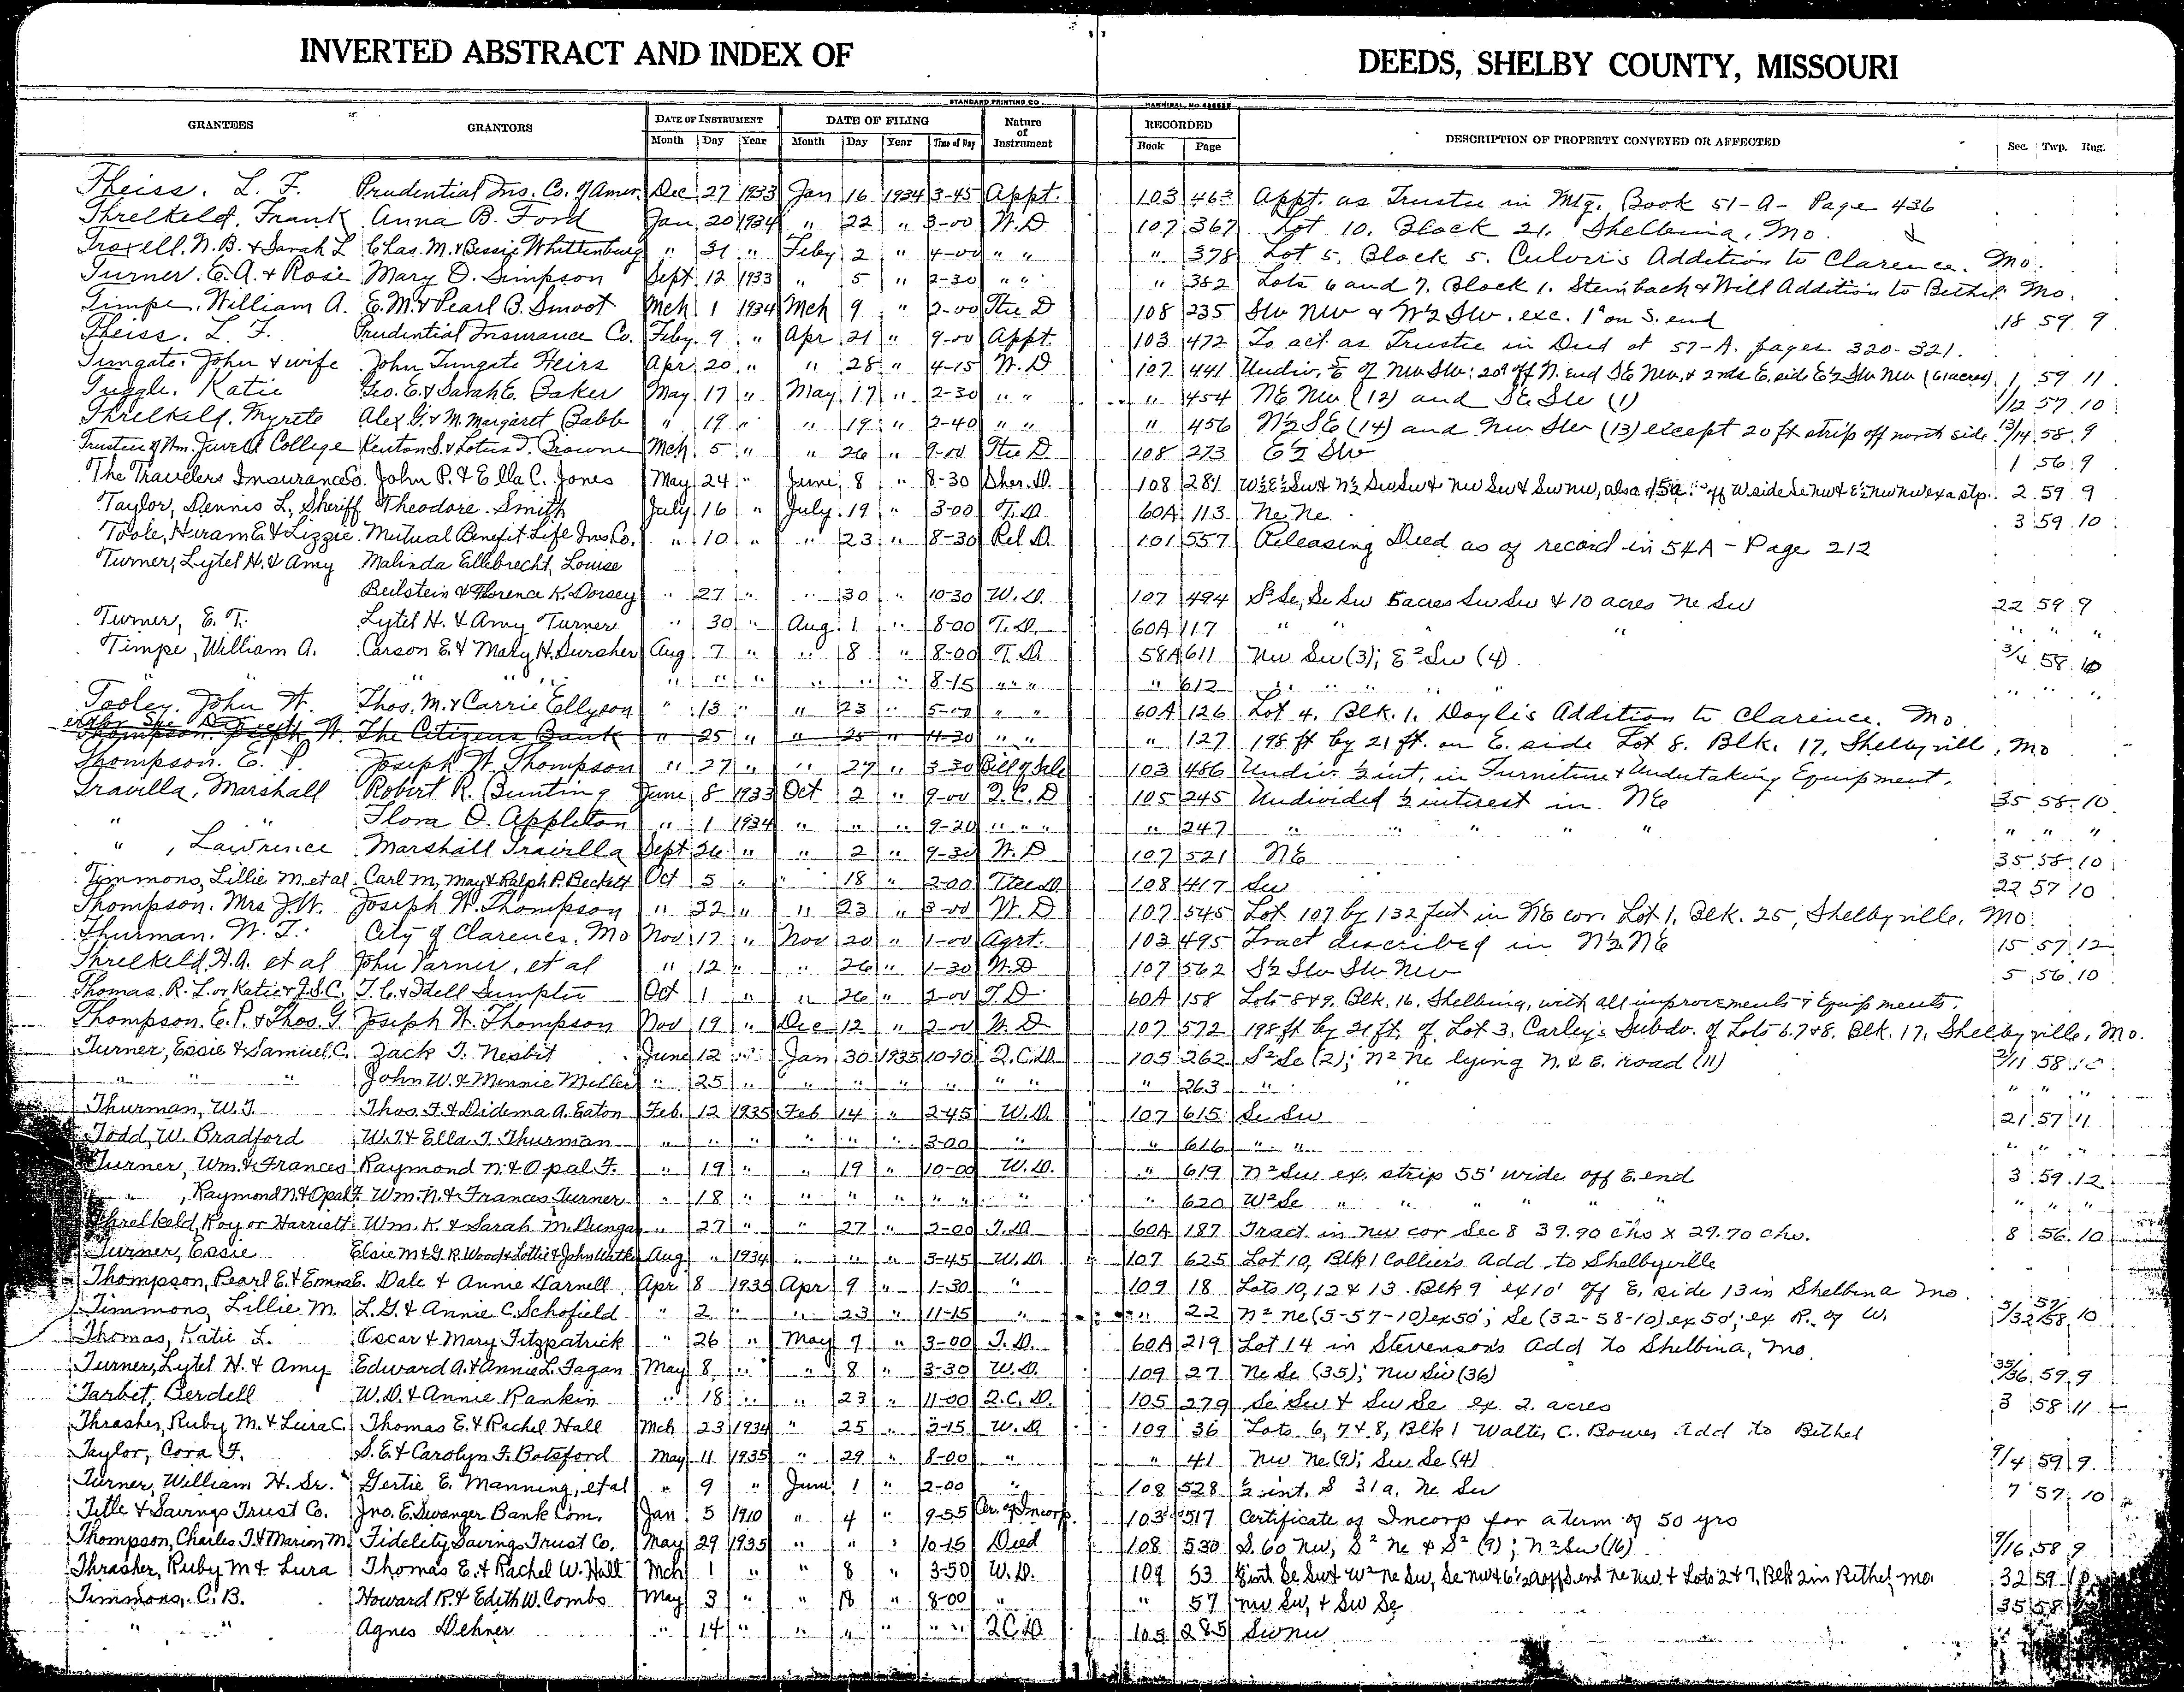 INVERTED ABSTRACT AND INDEX OF DEEDS, SHELBY COUNTY, MISSOURI
STANDARD PRINTING CO. HANNIBAL, MO
GRANTEES GRANTORS DATE OF INSTRUMENT DATE OF FILING Nature of Instrument RECORDED DESCRIPTION OF PROPERTY CONVEYED OR AFFECTED Sec. Twp. Rng.
Month Day Year Month Day Year Time of Day Book Page
Theiss. L. F. Prudential Ins. Co. of Amer. Dec 27 1933 Jan 16 1934 3-45 Appt. 103 463 Appt. as Trustee in Mtg. Book 51-A- Page 436
Threlkeld, Frank Anna B. Ford Jan 20 1934 " 22 " 3-00 W.D 107 367 Lot 10. Block 21. Shelbina, Mo.
Troxell. N. B. & Sarah L Chas. M. & Bessie Whittenburg " 31 " Feby 2 " 4-00 " " " 378 Lot 5. Block 5. Culver's Addition to Clarence. Mo.
Turner. E. A. & Rosie Mary O. Simpson Sept 12 1933 " 5 " 2-30 " " " 382 Lots 6 and 7. Block 1. Steinbach & Will Addition to Bethel Mo.
Timpe, William A. E. M. & Pearl B. Smoot Mch 1 1934 Mch 9 " 2-00 Ttee D 108 235 SW NW & W½ SW. exc. 1a on S. end 18 59 9
Theiss. L. F. Prudential Insurance Co. Feby 9 " Apr 21 " 9-00 Appt. 103 472 To act as Trustee in Deed at 57-A. pages 320-321.
Tungate. John & wife John Tungate Heirs Apr 20 " " 28 " 4-15 W.D 107 441 Undiv. 5/6 of NW SW; 20a off N. end SE NW, & 2 rds E. side E½ SW NW (61 acres) 1 59 11
Tuggle. Katie Geo. E. & Sarah E. Baker May 17 " May 17 " 2-30 " " " 454 NE NW (12) and SE SW (1) 1/12 57 10
Threlkeld. Myrte Alex G. & M. Margaret Babb " 19 " " 19 " 2-40 " " " 456 N½ SE (14) and NW SW (13) except 20 ft strip off north side 13/14 58 9
Trustees of Wm. Jewell College Kenton S. & Lotus D. Browne Mch 5 " " 26 " 9-00 Ttee D 108 273 E½ SW 1 56 9
The Travelers Insurance Co. John P. & Ella C. Jones May 24 " June 8 " 8-30 Sher. D. 108 281 W½ E½ SW & N½ SW SW & NW SW & SW NW, also 15a off W side Se NW & E½ NW NW ex a stp. 2 59 9
Taylor, Dennis L., Sheriff Theodore Smith July 16 " July 19 " 3-00 T.D. 60A 113 Ne Ne 3 59 10
Toole, Hiram E & Lizzie Mutual Benefit Life Ins Co. " 10 " " 23 " 8-30 Rel D. 101 557 Releasing Deed as of record in 54A - Page 212
Turner, Lytel H. & Amy Malinda Ellebrecht, Louise
Beilstein & Florence K. Dorsey " 27 " " 30 " 10-30 W.D. 107 494 S² Se, Se Sw 5 acres Sw Sw & 10 acres Ne Sw 22 59 9
Turner, E. T. Lytel H. & Amy Turner " 30 " Aug 1 " 8-00 T.D. 60A 117 " " " " " "
Timpe, William A. Carson E. & Mary H. Dursher Aug 7 " " 8 " 8-00 T.D. 58A 611 NW Sw (3); E² Sw (4) 3/4 58 10
" " " " " " " " " " 8-15 " " " 612 " " " " " " "
Tooley, John W. Thos. M. & Carrie Ellyson " 13 " " 23 " 5-00 " " 60A 126 Lot 4. Blk. 1. Doyle's Addition to Clarence. Mo.
Thompson. Joseph W. The Citizens Bank " 25 " " 25 " 11-30 " " " 127 198 ft by 21 ft. on E. side Lot 8. Blk. 17, Shelbyville, Mo
Thompson. E. P. Joseph W. Thompson " 27 " " 27 " 3-30 Bill of Sale 103 486 Undiv. ½ int. in Furniture & Undertaking Equipment.
Travilla, Marshall Robert R. Bunting June 8 1933 Oct 2 " 9-00 Q.C.D 105 245 Undivided ½ interest in NE 35 58 10
" " Flora O. Appleton " 1 1934 " " " 9-20 " " " " 247 " " " " " " " "
" , Lawrence Marshall Travilla Sept 26 " " 2 " 9-30 W.D 107 521 NE 35 58 10
Timmons, Lillie M. et al Carl M, May & Ralph P. Beckett Oct 5 " " 18 " 2-00 Ttee D 108 417 Sw 22 57 10
Thompson. Mrs J.W. Joseph W. Thompson " 22 " " 23 " 3-00 W.D 107 545 Lot 107 by 132 feet in NE cor. Lot 1, Blk. 25, Shelbyville, Mo
Thurman. W. T. City of Clarence, Mo Nov 17 " Nov 20 " 1-00 Agrt. 103 495 Tract described in N½ NE 15 57 12
Threlkeld, H.A. et al John Varner, et al " 12 " " 26 " 1-30 W.D 107 562 S½ SW SW NW 5 56 10
Thomas. R. L. or Katie & J.S.C. T. C. & Idell Sumpter Oct 1 " " 26 " 2-00 T.D. 60A 158 Lots 8 & 9. Blk. 16. Shelbina, with all improvements & Equipments.
Thompson. E. P. & Thos. G Joseph W. Thompson Nov 19 " Dec 12 " 2-00 W.D 107 572 198 ft by 21 ft. of Lot 3. Carley's Subdv. of Lots 6.7 & 8. Blk. 17, Shelbyville, Mo.
Turner, Essie & Samuel C. Zack T. Nesbit June 12 " Jan 30 1935 10-10 Q.C.D. 105 262 S² Se (2); N² Ne lying N. & E. road (11) 2/11 58 10
" " " John W. & Minnie Miller " 25 " " " " " " " " 263 " " " "
Thurman, W. T. Thos. F. & Didema A. Eaton Feb. 12 1935 Feb 14 " 2-45 W.D. 107 615 Se Sw 21 57 11
Todd, W. Bradford W.T & Ella T. Thurman " " " " " " 3-00 " " 616 " " " " "
Turner, Wm. & Frances Raymond N. & Opal F. " 19 " " 19 " 10-00 W.D. " 619 N² Sw ex. strip 55' wide off E. end 3 59 12
" , Raymond N. & Opal F. Wm. N. & Frances Turner " 18 " " " " " " " " 620 W² Se " " " " " " "
Threlkeld, Roy or Harriett Wm. K. & Sarah M. Dungan " 27 " " 27 " 2-00 T.D. 60A 187 Tract in NW cor Sec 8 39.90 chs x 29.70 chs. 8 56 10
Turner, Essie Elsie M & G. R. Wood & Lottie & John Watk Aug " 1934 " " " 3-45 W.D. 107 625 Lot 10, Blk 1 Collier's Add. to Shelbyville
Thompson, Pearl E. & Emma E. Dale & Annie Darnell Apr 8 1935 Apr 9 " 1-30 " 109 18 Lots 10, 12 & 13 Blk 9 ex 10' off E. side 13 in Shelbina Mo.
Timmons, Lillie M. L. G. & Annie C. Schofield " 2 " " 23 " 11-15 " " 22 N² Ne (5-57-10) ex 50'; Se (32-58-10) ex 50'; ex R. of W. 5/32 57/58 10
Thomas, Katie L. Oscar & Mary Fitzpatrick " 26 " May 7 " 3-00 T.D. 60A 219 Lot 14 in Stevenson's Add to Shelbina, Mo.
Turner, Lytel H. & Amy Edward A. & Annie L. Fagan May 8 " " 8 " 3-30 W.D. 109 27 Ne Se (35); NW Sw (36) 35/36 59 9
Tarbet, Berdell W. D. & Annie Rankin " 18 " " 23 " 11-00 Q.C.D. 105 279 Se Sw & Sw Se ex 2 acres 3 58 11
Thrasher, Ruby M. & Lura C. Thomas E. & Rachel Hall Mch 23 1934 " 25 " 2-15 W.D 109 36 Lots 6, 7 & 8, Blk 1 Walter C. Bower Add to Bethel
Taylor, Cora F. S. E. & Carolyn F. Botsford May 11 1935 " 29 " 8-00 " " 41 NW Ne (9); Sw Se (4) 9/4 59 9
Turner, William H. Sr. Gertie E. Manning, et al " 9 " June 1 " 2-00 " 108 528 ½ int. S 31 a. Ne Sw 7 57 10
Title & Savings Trust Co. Jno. E. Swanger Bank Com. Jan 5 1910 " 4 " 9-55 Cer. of Incorp. 103 517 Certificate of Incorp for a term of 50 yrs
Thompson, Charles T. & Marion M. Fidelity Savings Trust Co. May 29 1935 " " " 10-15 Deed 108 530 S. 60 NW; S² Ne & S² (9); N² Sw (16) 9/16 58 9
Thrasher, Ruby M & Lura Thomas E. & Rachel W. Hall Mch 1 " " 8 " 3-50 W.D. 109 53 Se Sw & W² Ne Sw, Se NW & 6½ a off S. end Ne NW. & Lots 2 & 7, Blk 2 in Bethel, Mo. 32 59 10
Timmons, C. B. Howard R. & Edith W. Combs May 3 " " 18 " 8-00 " " 57 NW Sw, & Sw Se 35 58
" " Agnes Dehner " 14 " " " " " " Q.C.D 105 285 Sw NW